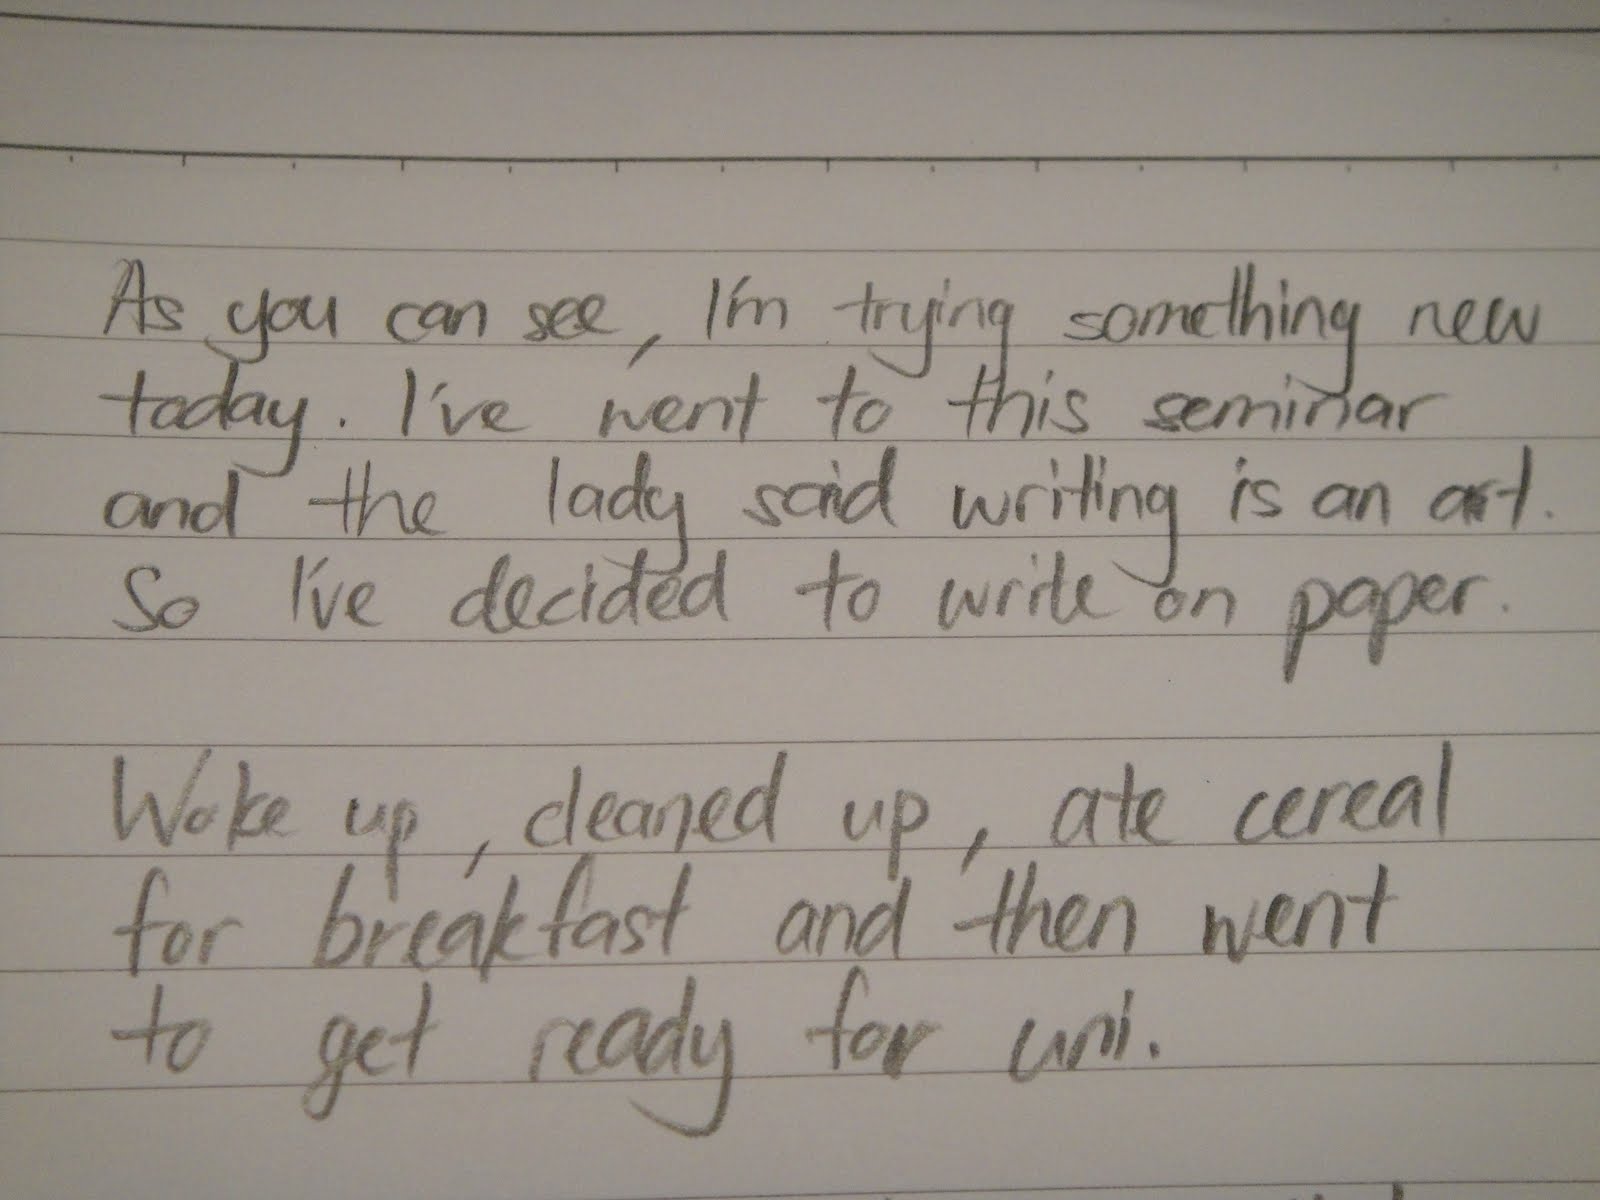 As you can see, I'm trying something new
today. I've went to this seminar
and the lady said writing is an art.
So I've decided to write on paper.
Woke up, cleaned up, ate cereal
for breakfast and then went
to get ready for uni.